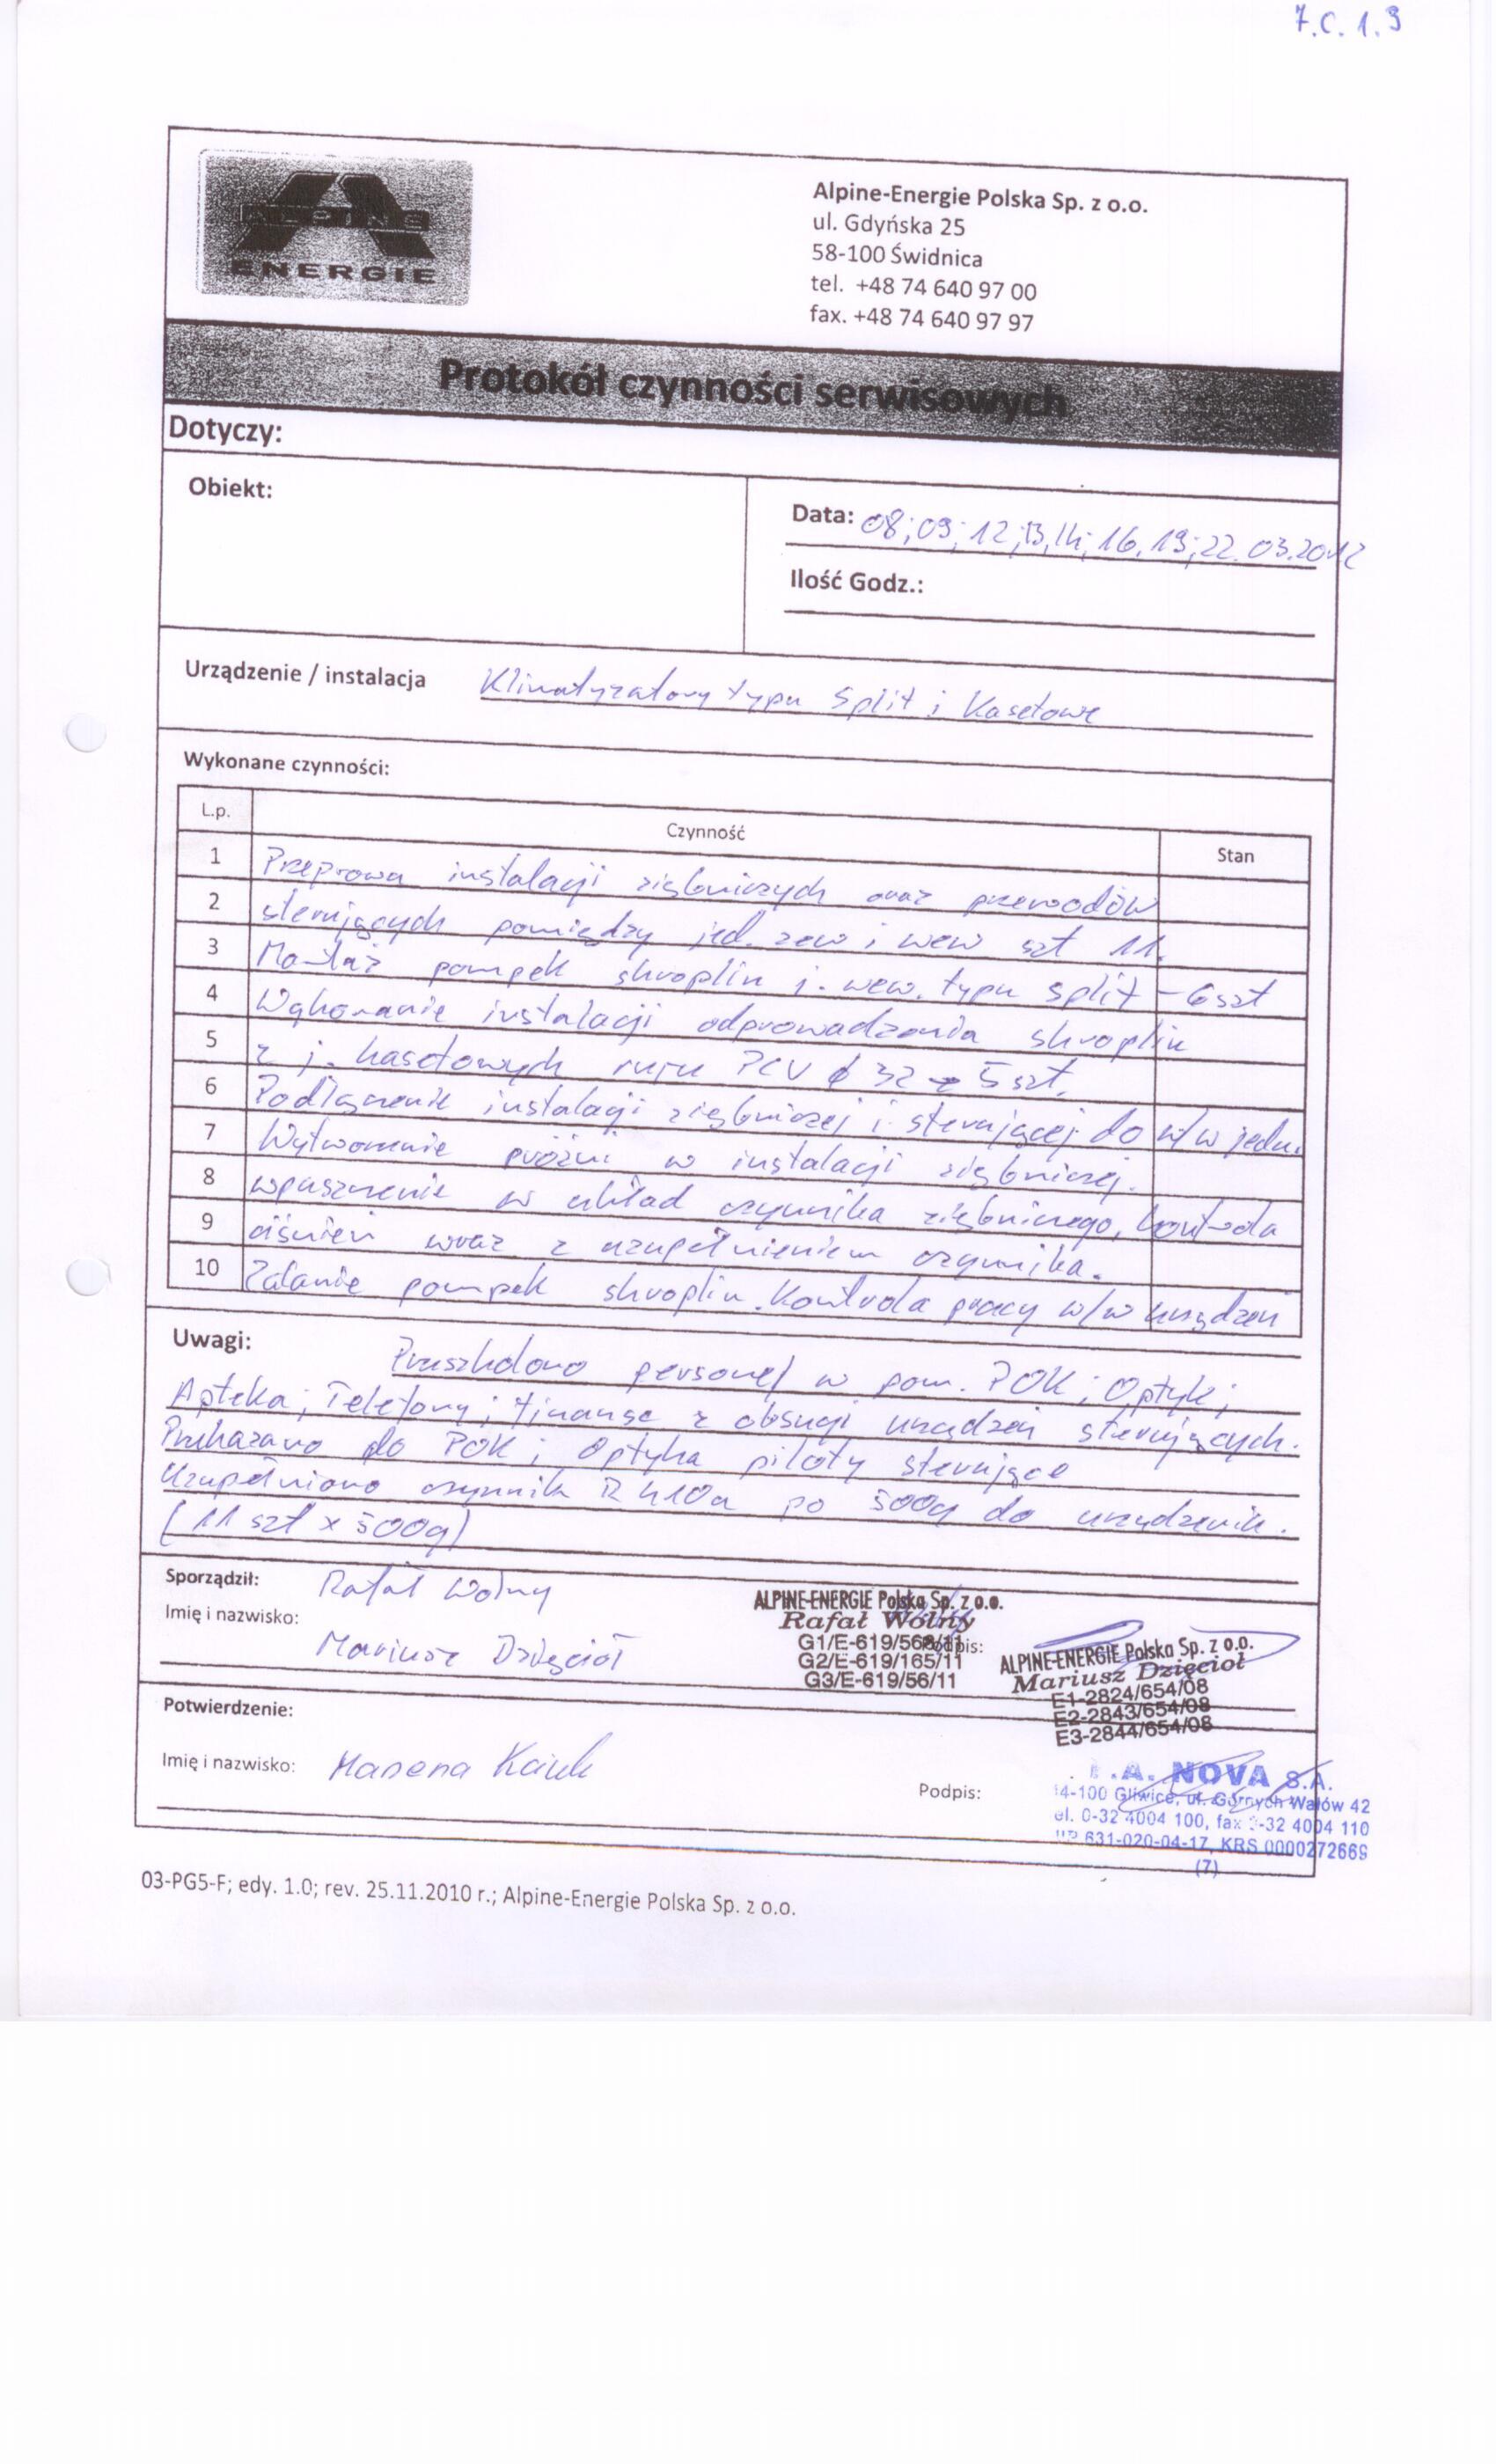 7.C.1.9
ALPINE
ENERGIE
Alpine-Energie Polska Sp. z o.o.
ul. Gdyńska 25
58-100 Świdnica
tel. +48 74 640 97 00
fax. +48 74 640 97 97
Protokół czynności serwisowych
Dotyczy:
Obiekt:
Data: 08; 09; 12; 13, 14; 16, 19; 22. 03.2012
Ilość Godz.:
Urządzenie / instalacja Klimatyzatory typu Split i Kasetowe
Wykonane czynności:
L.p. Czynność Stan
1 Przeprowa instalacji ziębniczych oraz przewodów
2 sterujących pomiędzy jed. zew i wew szt 11.
3 Montaż pompek skroplin j. wew. typu split - 6 szt
4 Wykonanie instalacji odprowadzania skroplin
5 z j. kasetowych rurą PCV ϕ 32 - 5 szt.
6 Podłączenie instalacji ziębniczej i sterującej do w/w jedn.
7 Wytworzenie próżni w instalacji ziębniczej.
8 wpuszczenie w układ czynnika ziębniczego, kontrola
9 ciśnień wraz z uzupełnieniem czynnika.
10 Zalanie pompek skroplin. Kontrola pracy w/w urządzeń
Uwagi: Przeszkolono personel w pom. POK; Optyk;
Apteka; Telefony; Finanse z obsugi urządzeń sterujących.
Przekazano do POK; Optyka piloty sterujące
Uzupełniono czynnik R410a po 500g do urządzenia.
(11 szt x 500g)
Sporządził: Rafał Wolny
Imię i nazwisko: Mariusz Dzięcioł
Podpis:
ALPINE-ENERGIE Polska Sp. z o.o.
Rafał Wolny
G1/E-619/568/11
G2/E-619/165/11
G3/E-619/56/11
ALPINE-ENERGIE Polska Sp. z o.o.
Mariusz Dzięcioł
E1-2824/654/08
E2-2843/654/08
E3-2844/654/08
Potwierdzenie:
Imię i nazwisko: Marzena
Podpis:
.A. NOVA S.A.
4-100 Gliwice, ul. Górnych Wałów 42
el. 0-32 4004 100, fax 0-32 4004 110
631-020-04-17, KRS 0000272669
(7)
03-PG5-F; edy. 1.0; rev. 25.11.2010 r.; Alpine-Energie Polska Sp. z o.o.